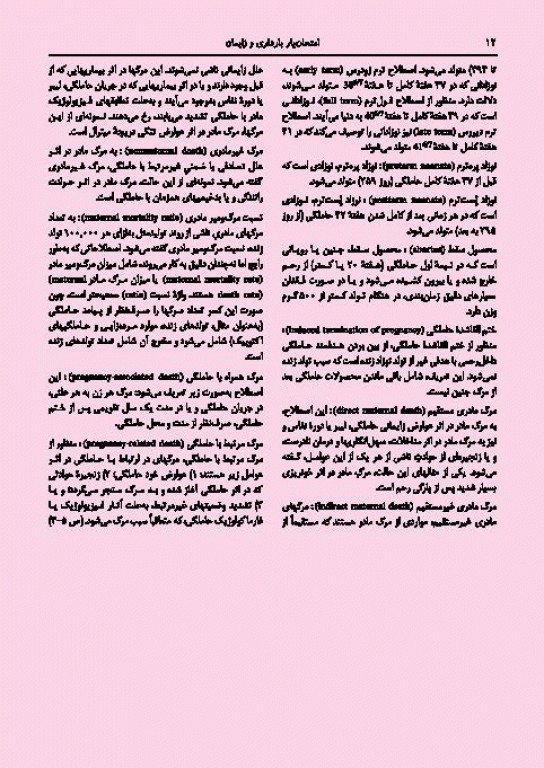 ۱۲
امتحان‌یار بارداری و زایمان
تا ۲۹۴) متولد می‌شود. اصطلاح ترم زودرس (early term) به
نوزادانی که در ۳۷ هفتهٔ کامل تا هفتهٔ 38⁶/⁷ متولد می‌شوند،
دلالت دارد. منظور از اصطلاح فول‌ترم (full term)، نوزادانی
است که در ۳۹ هفتهٔ کامل تا هفتهٔ 40⁶/⁷ به دنیا می‌آیند. اصطلاح
ترم دیررس (late term) نیز نوزادانی را توصیف می‌کند که در ۴۱
هفتهٔ کامل تا هفتهٔ 41⁶/⁷ متولد می‌شوند.
نوزاد پره‌ترم (preterm neonate): نوزاد پره‌ترم، نوزادی است که
قبل از ۳۷ هفتهٔ کامل حاملگی (روز ۲۵۹) متولد می‌شود.
نوزاد پست‌ترم (postterm neonate): نوزاد پست‌ترم، نوزادی
است که در هر زمانی بعد از کامل شدن هفتهٔ ۴۲ حاملگی (از روز
۲۹۵ به بعد) متولد می‌شود.
محصول سقط (abortus): محصول سقط، جنین یا رویانی
است که در نیمهٔ اول حاملگی (هفتهٔ ۲۰ یا کمتر) از رحم
خارج شده و یا بیرون کشیده می‌شود و یا در صورت فقدان
معیارهای دقیق زمان‌بندی، در هنگام تولد کمتر از ۵۰۰ گرم
وزن دارد.
ختم القاشدهٔ حاملگی (induced termination of pregnancy):
منظور از ختم القاشدهٔ حاملگی، از بین بردن هدفمند حاملگی
داخل‌رحمی با هدفی غیر از تولد نوزاد زنده است که سبب تولد زنده
نمی‌شود. این تعریف، شامل باقی ماندن محصولات حاملگی بعد
از مرگ جنین نیست.
مرگ مادری مستقیم (direct maternal death): این اصطلاح،
به مرگ مادر در اثر عوارض زایمانی حاملگی، لیبر یا دورهٔ نفاس و
نیز به مرگ مادر در اثر مداخلات، سهل‌انگاریها و درمان نادرست،
و یا زنجیره‌ای از حوادثِ ناشی از هر یک از این عوامل، گفته
می‌شود. یکی از مثالهای این حالت، مرگ مادر در اثر خونریزی
بسیار شدید پس از پارگی رحم است.
مرگ مادری غیرمستقیم (indirect maternal death): مرگهای
مادری غیرمستقیم، مواردی از مرگ مادر هستند که مستقیماً از
علل زایمانی ناشی نمی‌شوند. این مرگها در اثر بیماریهایی که از
قبل وجود دارند و یا در اثر بیماریهایی که در جریان حاملگی، لیبر
یا دورهٔ نفاس به‌وجود می‌آیند و به‌علت تطابقهای فیزیولوژیک
مادر با حاملگی تشدید می‌یابند، رخ می‌دهند. نمونه‌ای از این
مرگها، مرگ مادر در اثر عوارض تنگی دریچهٔ میترال است.
مرگ غیرمادری (nonmaternal death): به مرگ مادر در اثر
علل تصادفی یا ضمنیِ غیرمرتبط با حاملگی، مرگ غیرمادری
گفته می‌شود. نمونه‌ای از این حالت، مرگ مادر در اثر حوادث
رانندگی و یا بدخیمیهای همزمان با حاملگی است.
نسبت مرگ‌ومیر مادری (maternal mortality ratio): به تعداد
مرگهای مادریِ ناشی از روند تولیدمثل به‌ازای هر ۱۰۰،۰۰۰ تولد
زنده، نسبت مرگ‌ومیر مادری گفته می‌شود. اصطلاحاتی که به‌طور
رایج اما نه‌چندان دقیق به کار می‌روند، شامل میزان مرگ‌ومیر مادر
(maternal mortality rate) یا میزان مرگ مادر (maternal
death rate) هستند. واژهٔ نسبت (ratio) صحیح‌تر است، چون
صورت این کسر تعداد مرگها را صرف‌نظر از پیامد حاملگی
(به‌عنوان مثال، تولدهای زنده، موارد مرده‌زایی و حاملگیهای
اکتوپیک) شامل می‌شود و مخرج آن شامل تعداد تولدهای زنده
است.
مرگ همراه با حاملگی (pregnancy-associated death): این
اصطلاح به‌صورت زیر تعریف می‌شود: مرگ هر زن به هر علتی،
در جریان حاملگی و یا در مدت یک سال تقویمی پس از ختم
حاملگی، صرف‌نظر از مدت و محل حاملگی.
مرگ مرتبط با حاملگی (pregnancy-related death): منظور از
مرگ مرتبط با حاملگی، مرگهای در ارتباط با حاملگی در اثر
عوامل زیر هستند: ۱) عوارض خود حاملگی؛ ۲) زنجیرهٔ حوادثی
که در اثر حاملگی آغاز شده و به مرگ منجر می‌گردند؛ و یا
۳) تشدید وضعیتهای غیرمرتبط، به‌علت آثار فیزیولوژیک یا
فارماکولوژیک حاملگی، که متعاقباً سبب مرگ می‌شود. (ص ۵-۳)